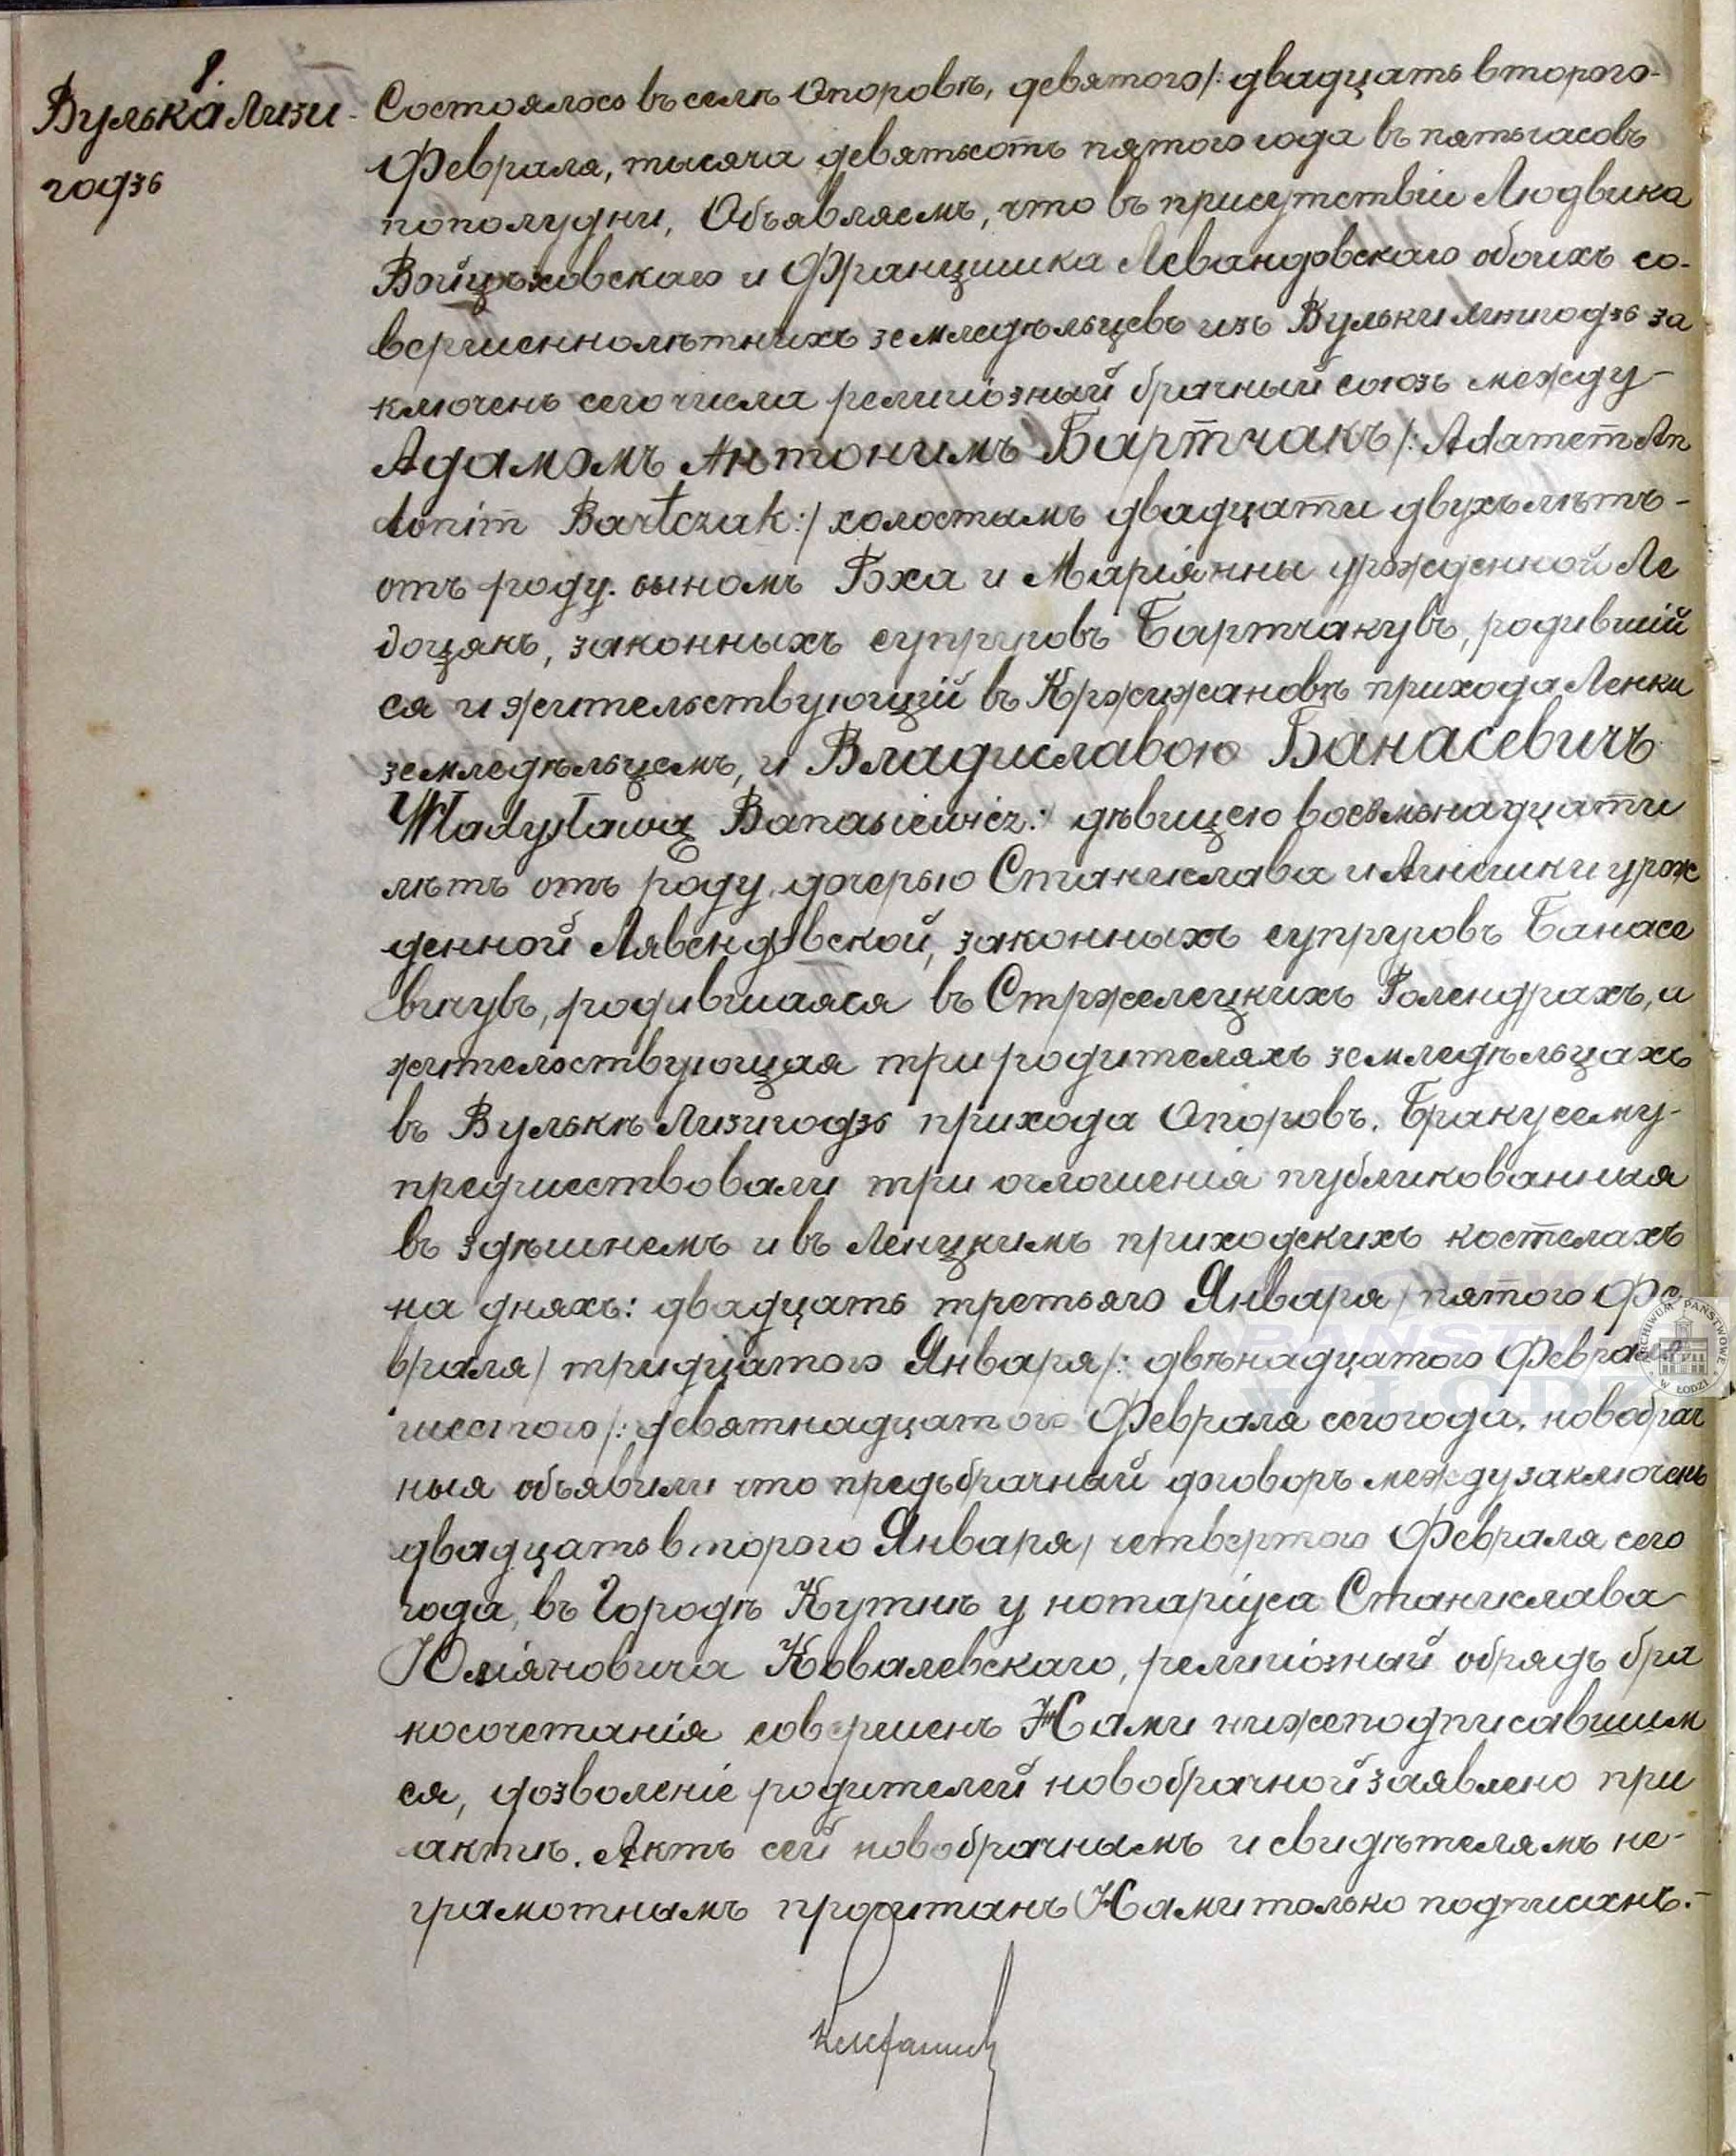 8.
Вулька Лизи-
годзь
Состоялось въ селѣ Опоровѣ, девятого /: двадцать второго-
Февраля, тысяча девятьсотъ пятого года въ пять часовъ
пополудни, Объявляемъ, что въ присутствіи Людвика
Войцѣховскаго и Францишка Левандовскаго обоихъ со-
вершеннолѣтнихъ земледѣльцевъ изъ Вульки Лизигодзь за
ключенъ сего числа религіозный брачный союзъ между-
Адамомъ Антонимъ Бартчакъ /: Adamem An
tonim Bartczak :/ холостымъ двадцати двухъ лѣтъ-
отъ роду. сыномъ и Маріянны урожденной Ле
доцякъ, законныхъ супруговъ Бартчакувъ, родившій
ся и жительствующій въ Кржижановѣ прихода Ленки
земледѣльцемъ, и Владиславою Банасевичъ
Władysławą Banasiewicz :/ дѣвицею восемьнадцати
лѣтъ отъ роду, дочерью Станислава и Агнешки урож
денной Лявендовской, законныхъ супруговъ Банасе
вичувъ, родившаяся въ Стржелецкихъ Голендрахъ, а
жительствующая при родителяхъ земледѣльцахъ
въ Вулькѣ Лизигодзь прихода Опоровъ. Браку сему-
предшествовали три оглошенія публикованныя
въ здѣшнемъ и въ Ленцкимъ приходскихъ костелахъ
на дняхъ: двадцать третьяго Января / пятого Фе
враля / тридцатого Января /: двѣнадцатого Февраля
шестого /: девятнадцатого Февраля сего года, новобрач
ныя объявили что предъбрачный договоръ между заключенъ
двадцать второго Января / четвертого Февраля сего
года, въ Городѣ Кутнѣ у нотаріуса Станислава
Юліяновича Ковалевскаго, религіозный обрядъ бра
косочетанія совершенъ Нами нижеподписавшим
ся, дозволеніе родителей новобрачной заявлено при
актѣ. Актъ сей новобрачнымъ и свидѣтелямъ не-
грамотнымъ прочитанъ Нами только подписанъ.-
ARCHIWUM PAŃSTWOWE W ŁODZI